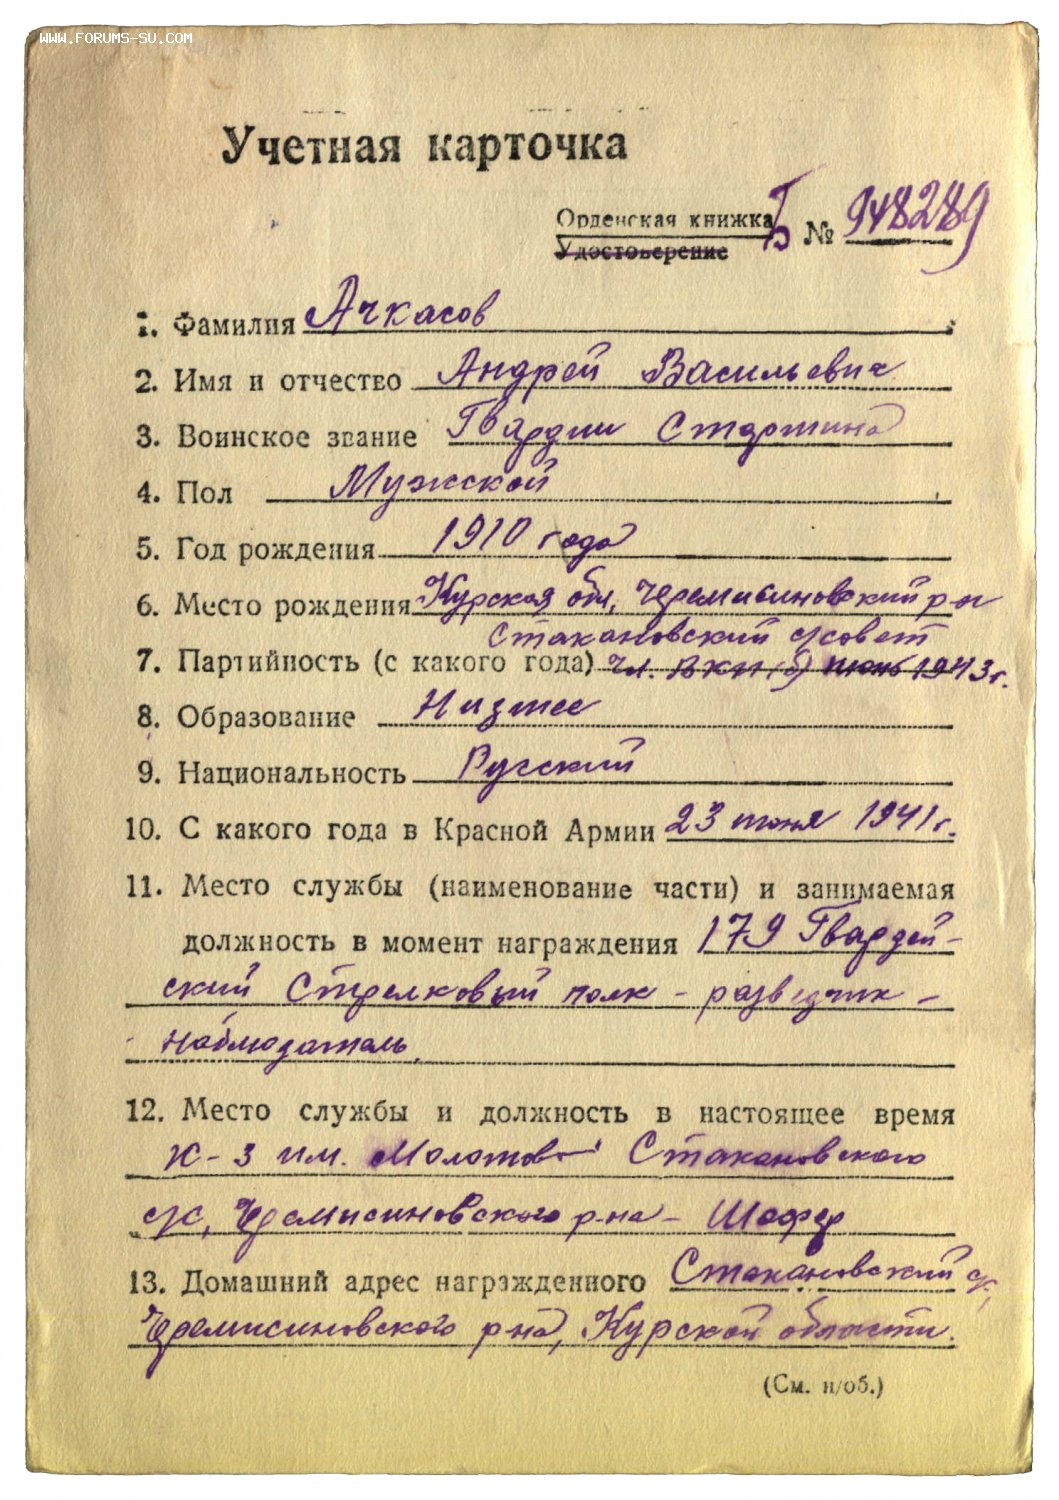 WWW.FORUMS-SU.COM
Учетная карточка
Орденская книжка Б № 948289
Удостоверение
1. Фамилия Ачкасов
2. Имя и отчество Андрей Васильевич
3. Воинское звание Гвардии Старшина
4. Пол Мужской
5. Год рождения 1910 года
6. Место рождения Курская обл, Черемисиновский р-н
Стакановский с/совет
7. Партийность (с какого года) чл. ВКП(б) июнь 1943 г.
8. Образование Низшее
9. Национальность Русский
10. С какого года в Красной Армии 23 июня 1941 г.
11. Место службы (наименование части) и занимаемая
должность в момент награждения 179 Гвардей-
ский Стрелковый полк - разведчик -
наблюдатель.
12. Место службы и должность в настоящее время
к-з им. Молотова Стакановского
с/с, Черемисиновского р-на - Шофер
13. Домашний адрес награжденного Стакановский с/с,
Черемисиновского р-на, Курской области.
(См. н/об.)